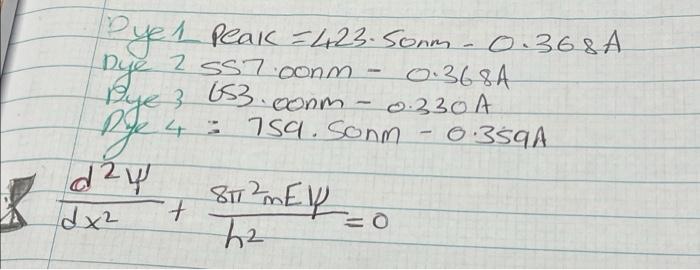 Dye 1 Peak = 423.50nm - 0.368A
Dye 2 557.00nm - 0.368A
Dye 3 653.00nm - 0.330A
Dye 4 = 759.50nm - 0.359A
d²ψ/dx² + 8π²mEψ/h² = 0